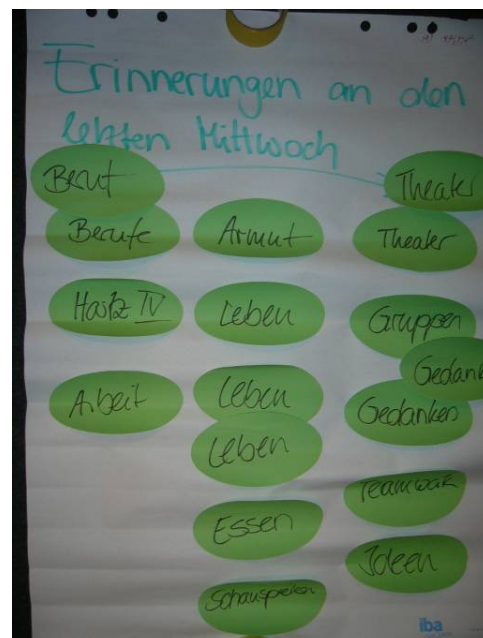 Erinnerungen an den
letzten Mittwoch
Beruf
Berufe
Hartz IV
Arbeit
Armut
Leben
Leben
Leben
Essen
Schauspielen
Theater
Theater
Gruppen
Gedank
Gedanken
Teamwork
Ideen
iba